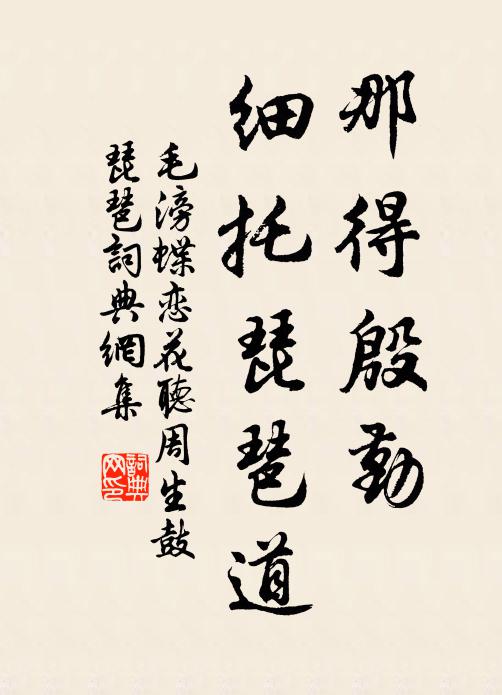 那得殷勤
细托琵琶道
毛滂蝶恋花聽周生鼓
琵琶詞典網集
詞典
网印